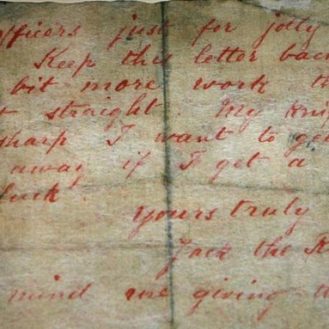 officers just for jolly
Keep this letter back
bit more work th
t straight My kni
sharp I want to ge
away if I get a
luck.
Yours truly
Jack the R
mind me giving th